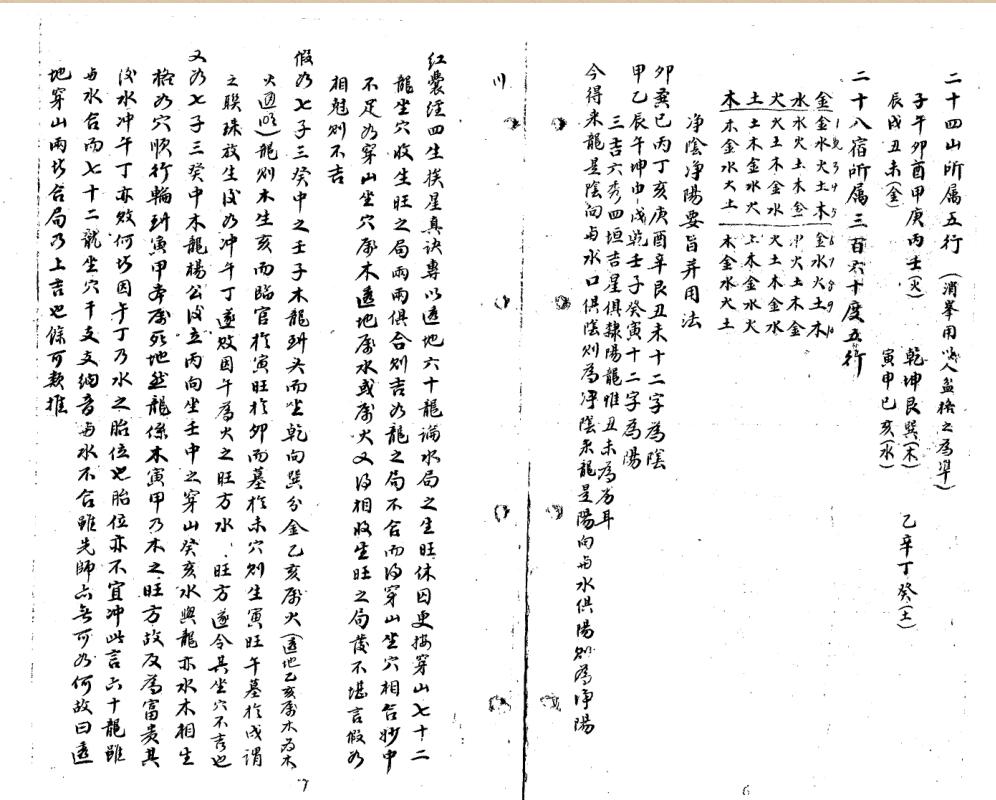 二十四山所属五行(消峯用以人盆格之為準)
子午卯酉甲庚丙壬(火) 乾坤艮巽(木) 乙辛丁癸(土)
辰戌丑未(金) 寅申巳亥(水)
二十八宿所属三百六十度五行
金 金水火土木 金水火土木
水 水火土木金 火土木金
火 火土木金水 火土木金水
土 土木金水火 土木金水火
木 木金水火土 木金水火土
净陰净陽要旨并用法
卯巽巳丙丁亥庚酉辛艮丑未十二字為陰
甲乙辰午坤申戌乾壬子癸寅十二字為陽
三吉六秀四垣吉星俱隸陽龍惟丑未為劣耳
今得来龍是陰向與水口俱陰則為净陰来龍是陽向與水俱陽則為净陽
6
红囊經四生挨星真诀專以透地六十龍論水局之生旺休囚更接穿山七十二
龍坐穴收生旺之局兩兩俱合则吉如龍之局不合而得穿山坐穴相合妙中
不足如穿山坐穴屬木透地屬水或屬火又得相收生旺之局發不堪言假如
相尅则不吉
假如七子三癸中之壬子木龍到头而坐乾向巽分金乙亥屬火(透地乙亥屬水為木
火通明)龍则木生亥而臨官於寅旺於卯而墓於未穴则生寅旺午墓於戌謂
之聯珠放生後如冲午丁遂敗因午為火之旺方水旺方遂令其坐穴不吉也
又如七子三癸中木龍楊公後立丙向坐壬中之穿山癸亥水與龍亦水木相生
格如穴順行輪到寅甲本屬死地然龍係木寅甲乃木之旺方故反為富貴其
後水冲午丁亦敗何以因午丁乃水之胎位也胎位亦不宜冲此言六十龍雖
與水合而七十二龍坐穴干支支納音與水不合雖先師亦無可如何故曰透
地穿山兩皆合局乃上吉也餘可類推
7